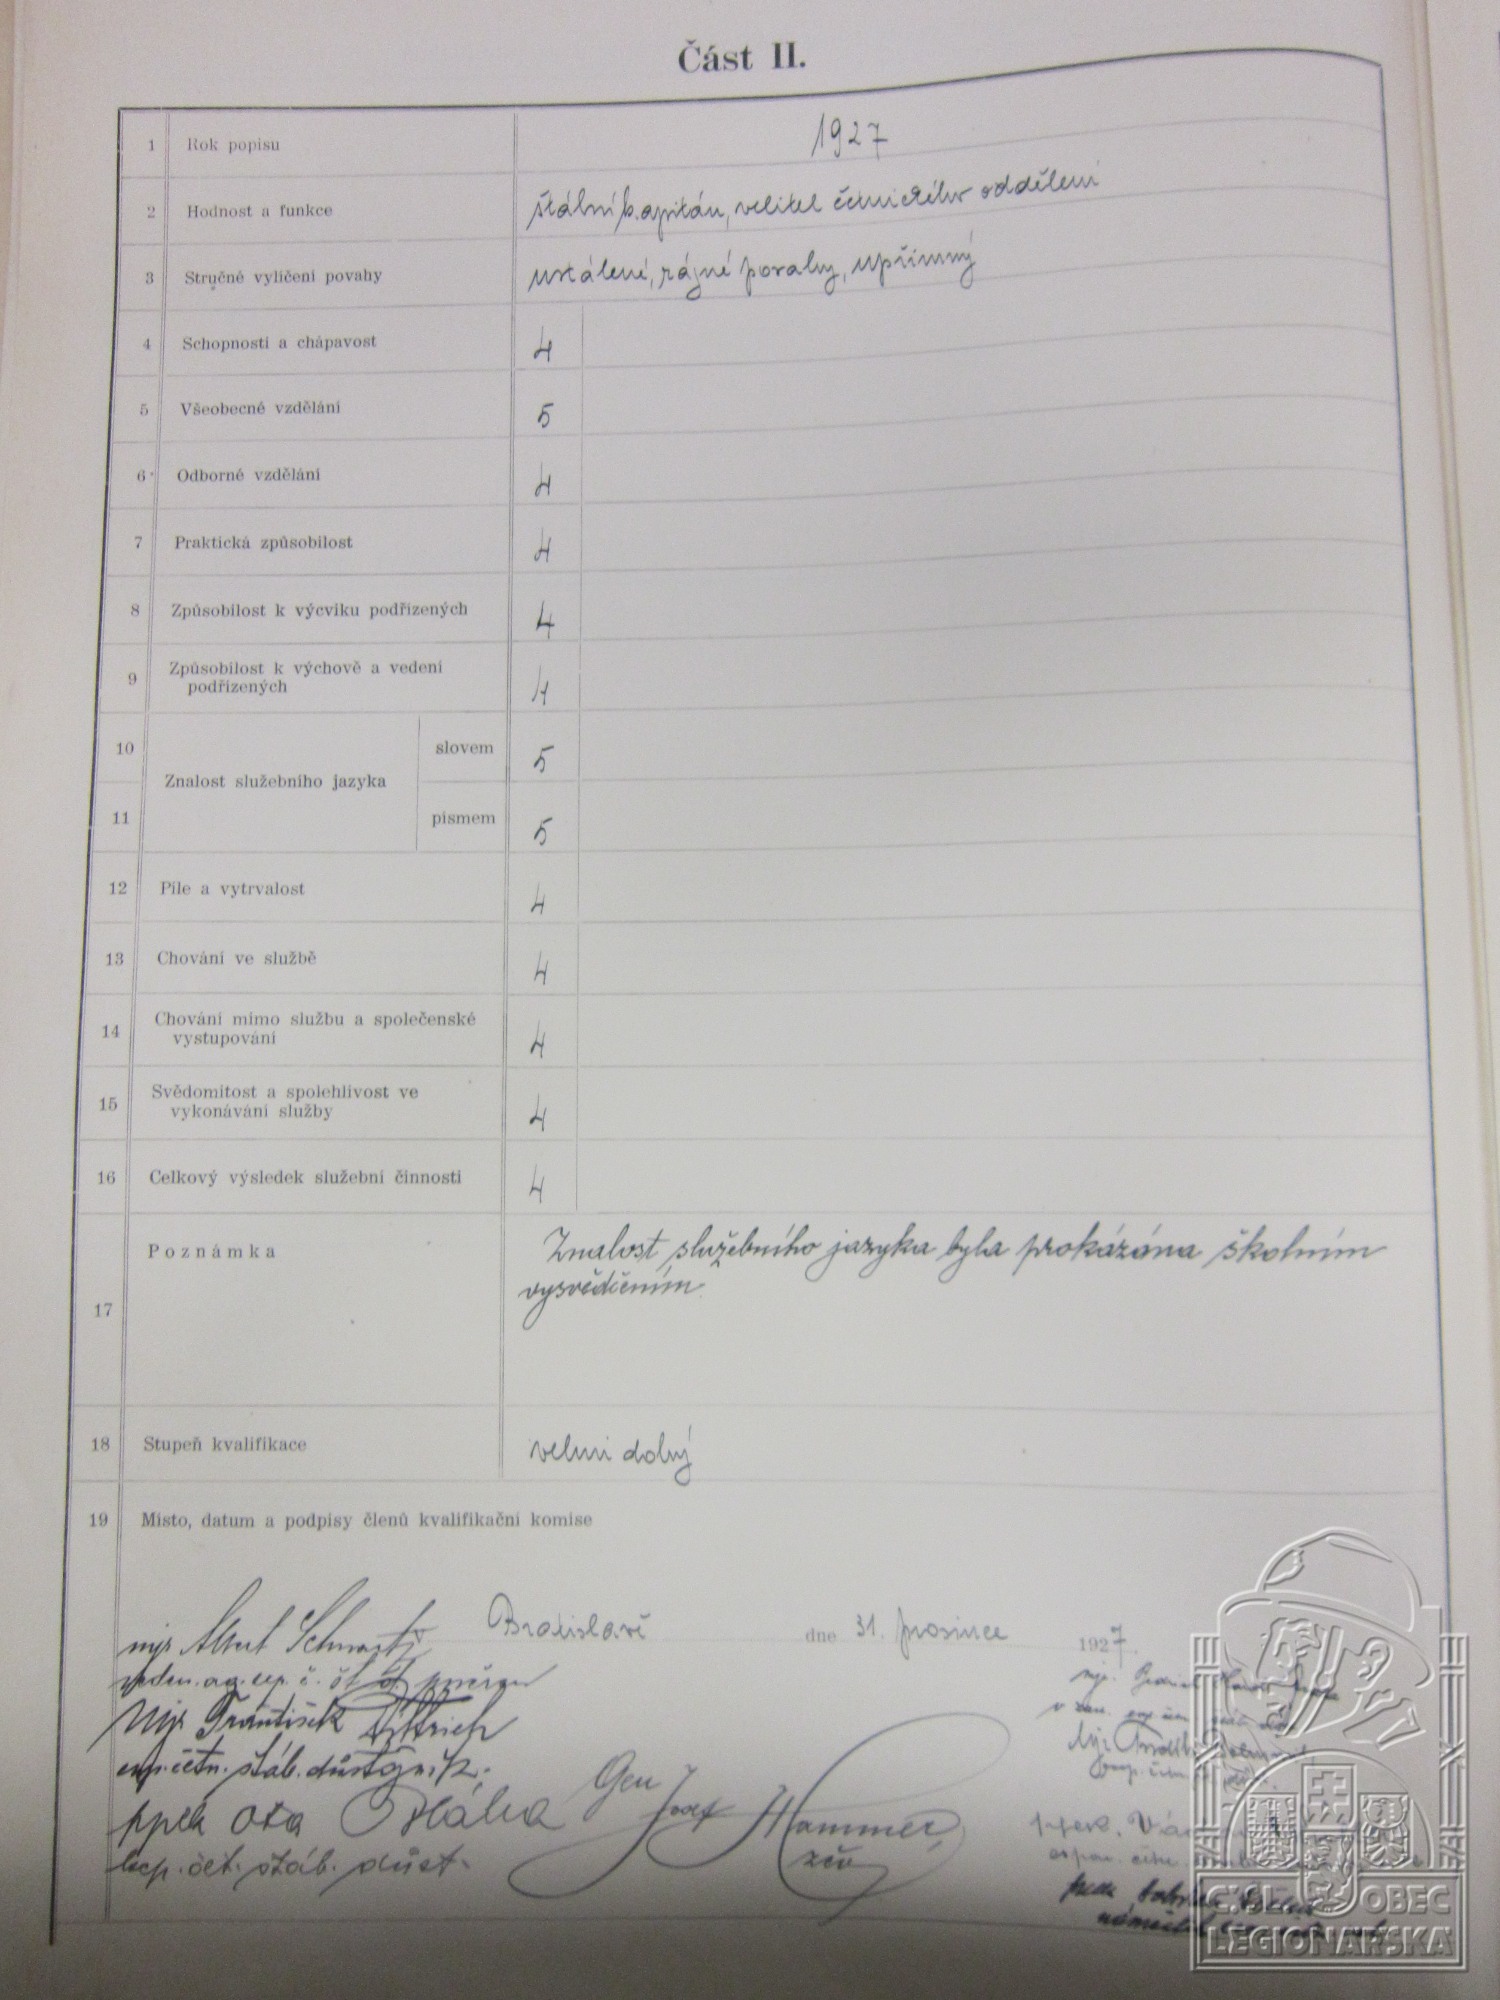 Část II.
1 Rok popisu 1927
2 Hodnost a funkce štábní kapitán, velitel četnického oddělení
3 Stručné vylíčení povahy ustálené, rázné povahy, upřímný
4 Schopnosti a chápavost 4
5 Všeobecné vzdělání 5
6 Odborné vzdělání 4
7 Praktická způsobilost 4
8 Způsobilost k výcviku podřízených 4
9 Způsobilost k výchově a vedení
podřízených 4
10 slovem 5
Znalost služebního jazyka
11 písmem 5
12 Píle a vytrvalost 4
13 Chování ve službě 4
14 Chování mimo službu a společenské
vystupování 4
15 Svědomitost a spolehlivost ve
vykonávání služby 4
16 Celkový výsledek služební činnosti 4
17 Poznámka Znalost služebního jazyka byla prokázána školním
vysvědčením
18 Stupeň kvalifikace velmi dobrý
19 Místo, datum a podpisy členů kvalifikační komise
Bratislavě dne 31. prosince 1927
mjr. Albert
mjr. František Dittrich
exp. četn. štáb. důstojník.
Ota
čet. stáb. důst.
Gen Josef Hammer
zčv
mjr.
Č.SL. OBEC
LEGIONÁŘSKÁ